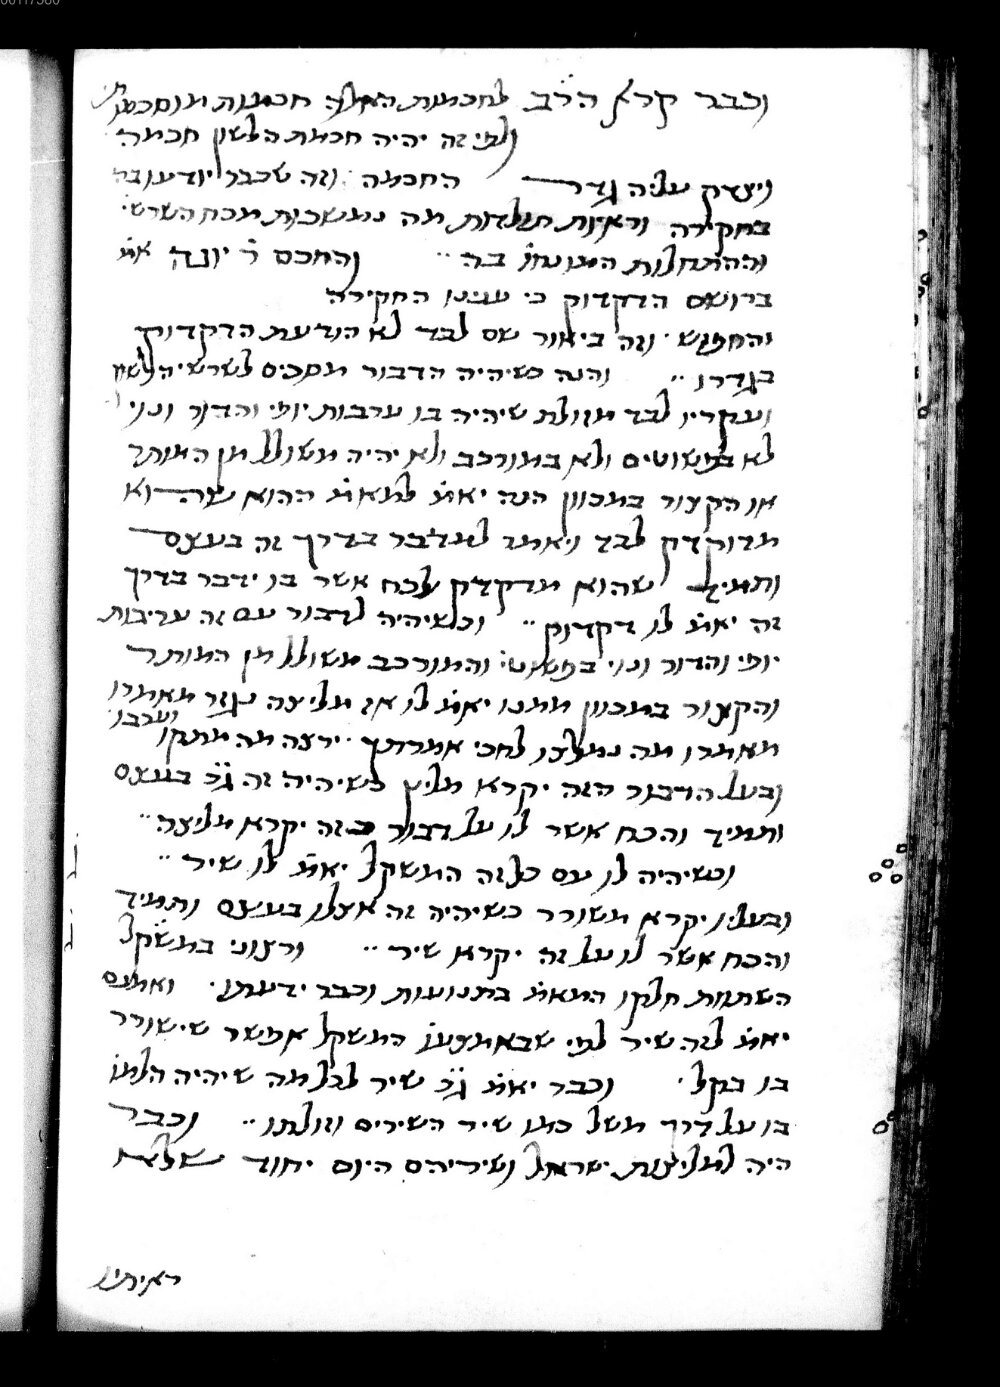 וכבר קרא הרב לחכמות האלה חכמות מוסכמות
ולפי זה יהיה חכמת הלשון חכמה
ויצדק עליה גדר החכמה וזה שכבר יודעו בה
בחקירה וראיות תולדות מה נמשכות מכח השרשי'
וההתחלות המונחו' בה ״ והחכם ר' יונה את'
ברושם הדקדוק כי ענינו החקירה
והחפוש ׳ וזה ביאור שם לבד לא הודעת הדקדוק
בגדרו ״ והנה כשיהיה הדבור מסכים לשרשי הלשון
ועקריו לבד מזולת שיהיה בו ערבות יופי והדור ונוי
לא בפשוטים ולא במורכב ולא יהיה משולל מן המותר
או הקצור במכוון הנה יאמ' למאמ' ההוא שהוא
מדוקדק לבד ויאמר למדבר בדרך זה בעצם
ותמיד שהוא מדקדק ולכח אשר בו ידבר בדרך
זה יאמ' לו דקדוק ״ וכשיהיה לדבור עם זה עריבות
יופי והדור ונוי בפשוטי' והמורכב משולל מן המותר
והקצור במכוון ממנו יאמ' לו אז מליצה נגזר מאמרו
מאמרו מה נמלצו לחכי אמרתך ׳ ירצה מה מתקו וערבו
ובעל הדבור הזה יקרא מליץ כשיהיה זה ג״כ בעצם
ותמיד והכח אשר לו על דבור כזה יקרא מליצה ״
וכשיהיה לו עם כל זה המשקל יאמ' לו שיר ״
ובעליו יקרא משורר כשיהיה זה אצלו בעצם ותמיד
והכח אשר לו על זה יקרא שיר ״ ורצוני במשקל
השתוות חלקי המאמ' בתנועות וכבר ידעתו ׳ ואמנם
יאמ' לזה שיר לפי שבאמצעו' המשקל אפשר שישורר
בו בקל ׳ וכבר יאמ' ג״כ שיר לכל מה שיהיה הלמו'
בו על דרך משל כמו שיר השירים וזולתו ״ וכבר
היה למליצות ישראל ושיריהם היום יחוד שלא
ראיתיו